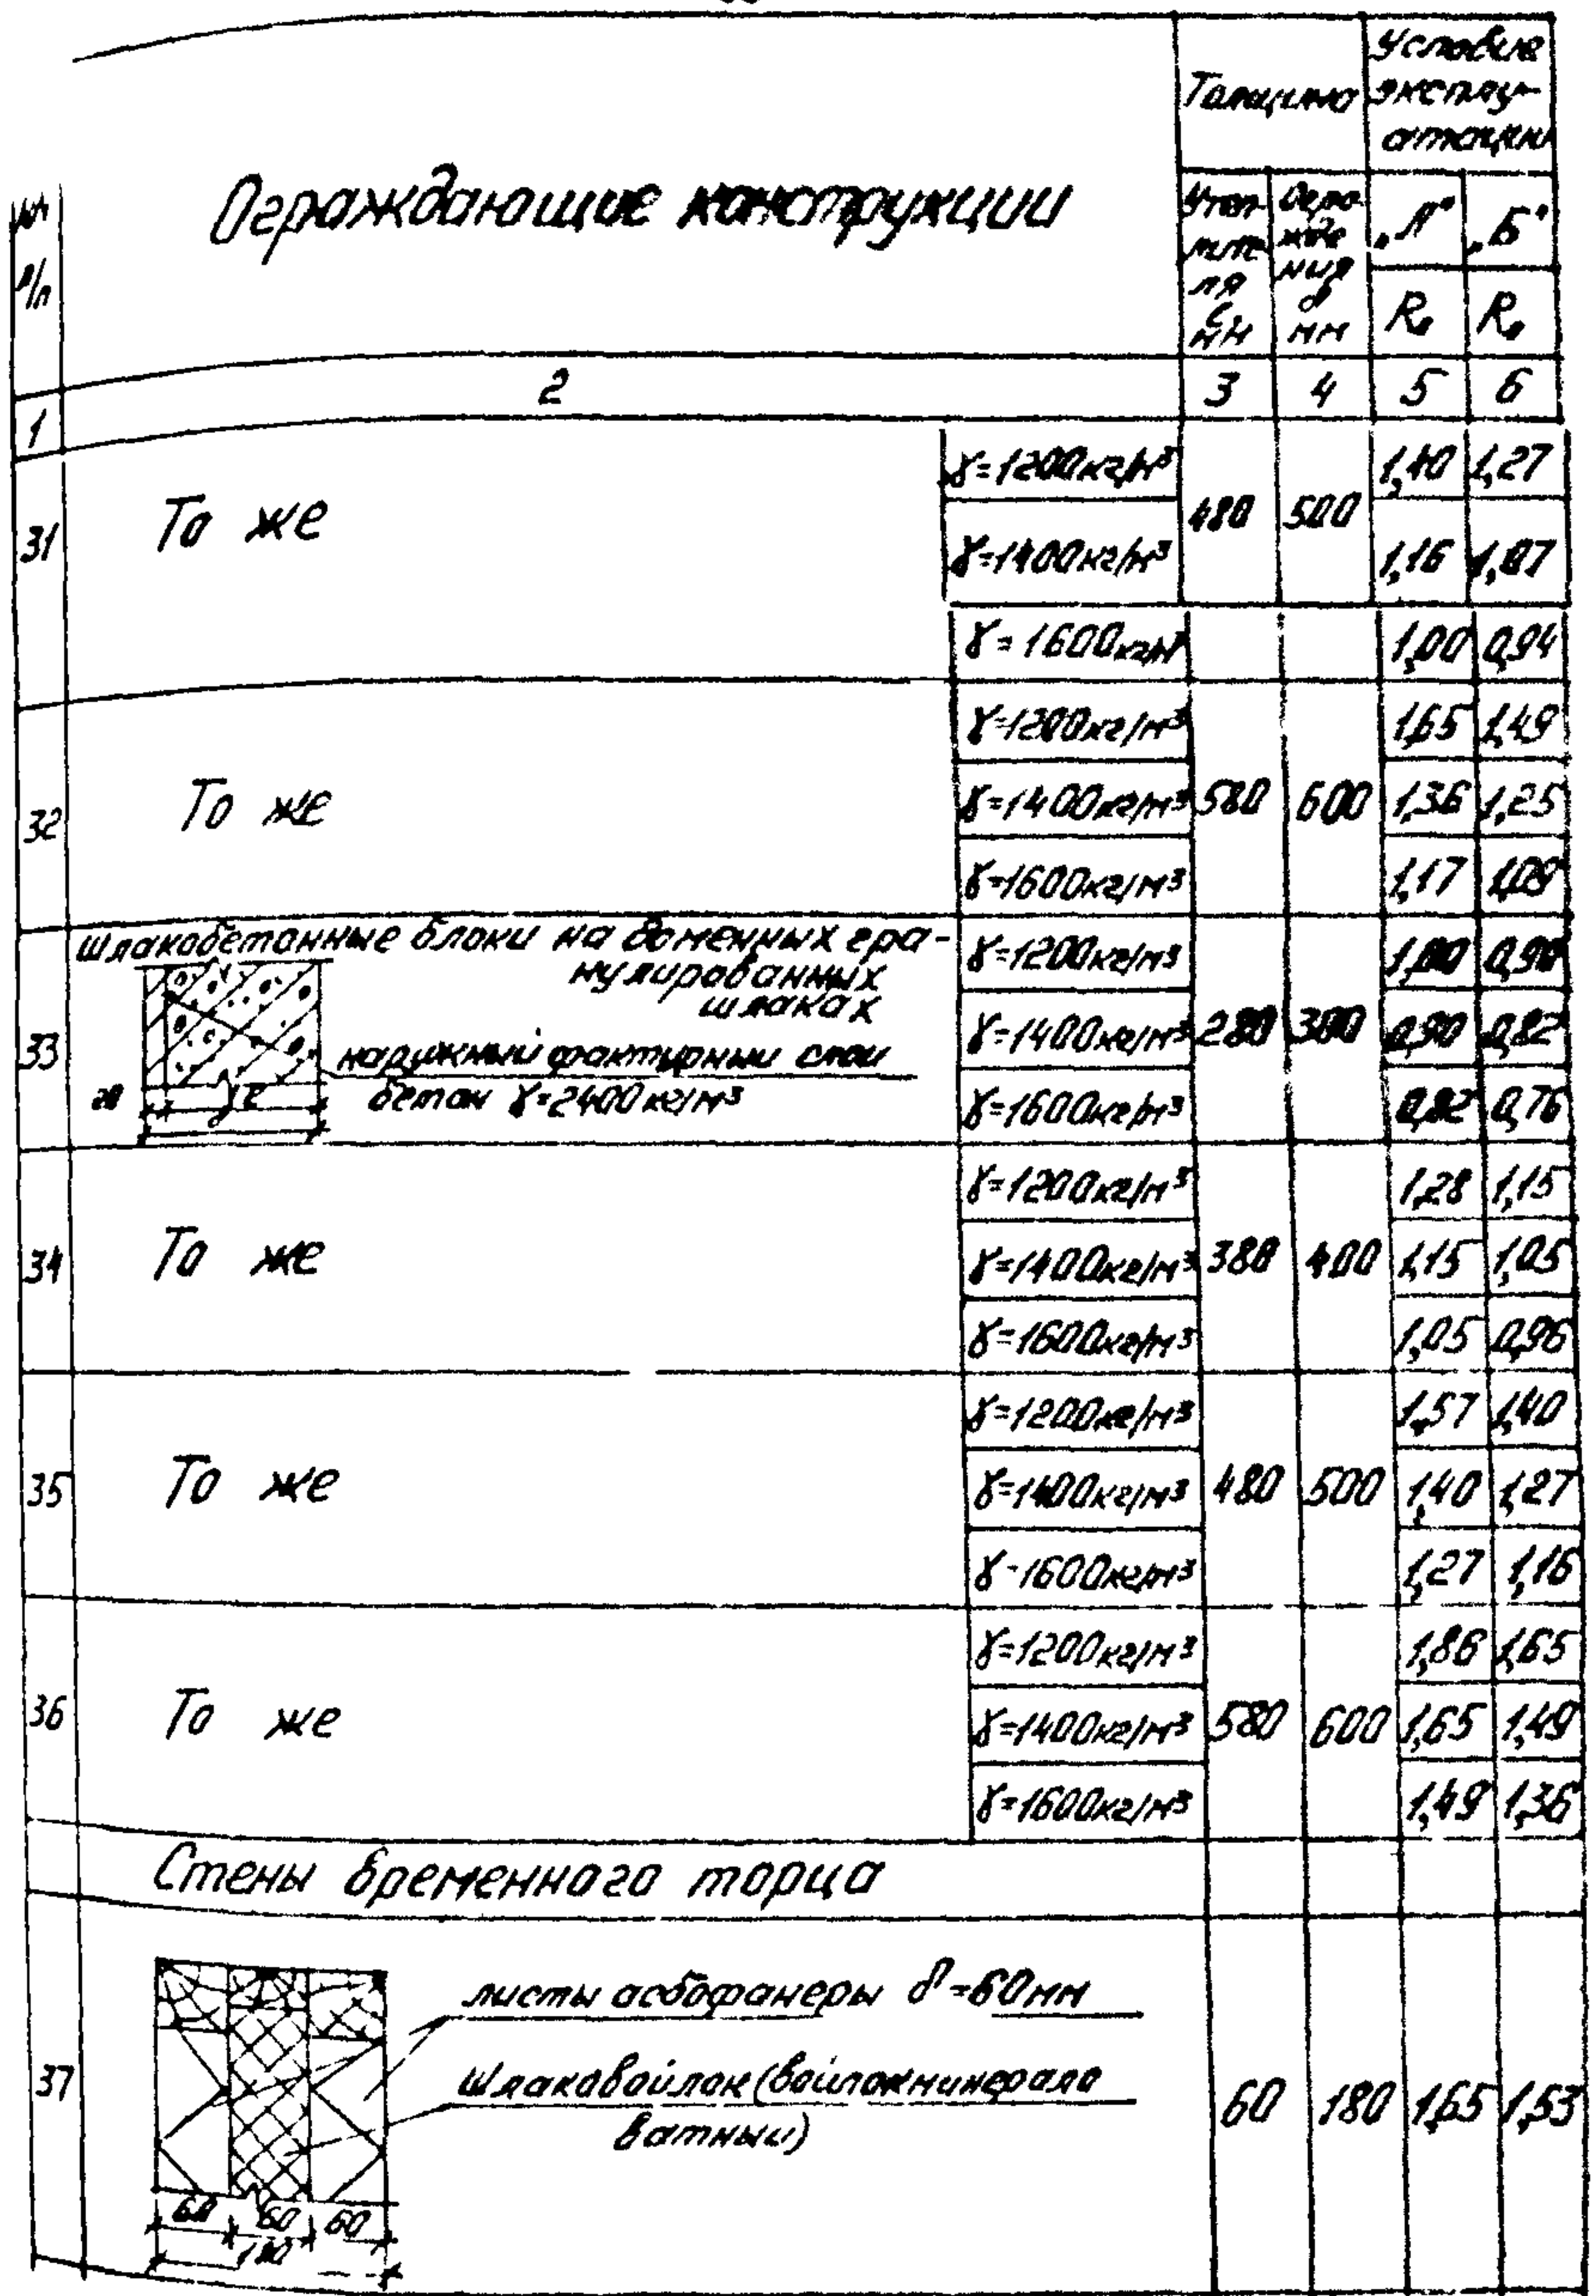 №№ п/п
Ограждающие конструкции
Толщина
Условие эксплуатации
Утеплителя С, мм
Ограждения δ мм
„А"
„Б"
R₀
R₀
1
2
3
4
5
6
31
То же
γ=1200кг/м³
480
500
1,40
1,27
γ=1400кг/м³
1,16
1,07
γ=1600кг/м³
1,00
0,94
32
То же
γ=1200кг/м³
1,65
1,49
γ=1400кг/м³
580
600
1,36
1,25
γ=1600кг/м³
1,17
1,09
33
шлакобетонные блоки на доменных гра-
нулированных
шлаках
наружный фактурный слой
бетон γ=2400кг/м³
20
γ=1200кг/м³
1,00
0,90
γ=1400кг/м³
280
300
0,90
0,82
γ=1600кг/м³
0,82
0,76
34
То же
γ=1200кг/м³
1,28
1,15
γ=1400кг/м³
380
400
1,15
1,05
γ=1600кг/м³
1,05
0,96
35
То же
γ=1200кг/м³
1,57
1,40
γ=1400кг/м³
480
500
1,40
1,27
γ=1600кг/м³
1,27
1,16
36
То же
γ=1200кг/м³
1,86
1,65
γ=1400кг/м³
580
600
1,65
1,49
γ=1600кг/м³
1,49
1,36
Стены временного торца
37
листы асбофанеры δ=60мм
Шлаковойлок (войлок минерало
ватный)
60
60
60
180
60
180
1,65
1,53